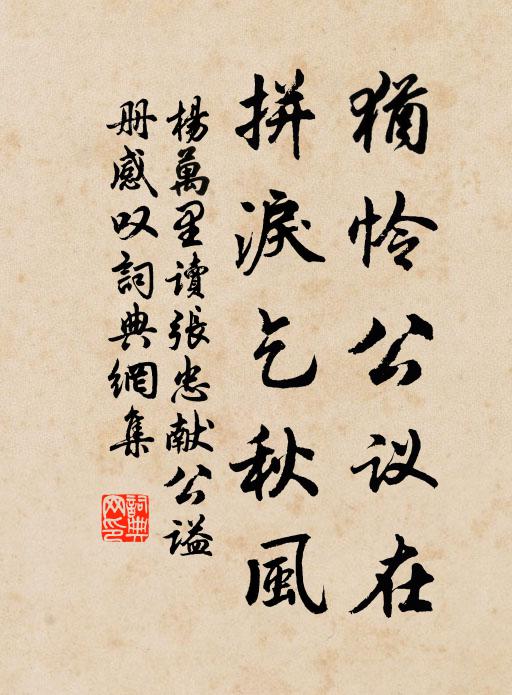 犹怜公议在
拼淚乞秋風
楊萬里讀張忠献公谥
册感叹詞典網集
詞典
网印